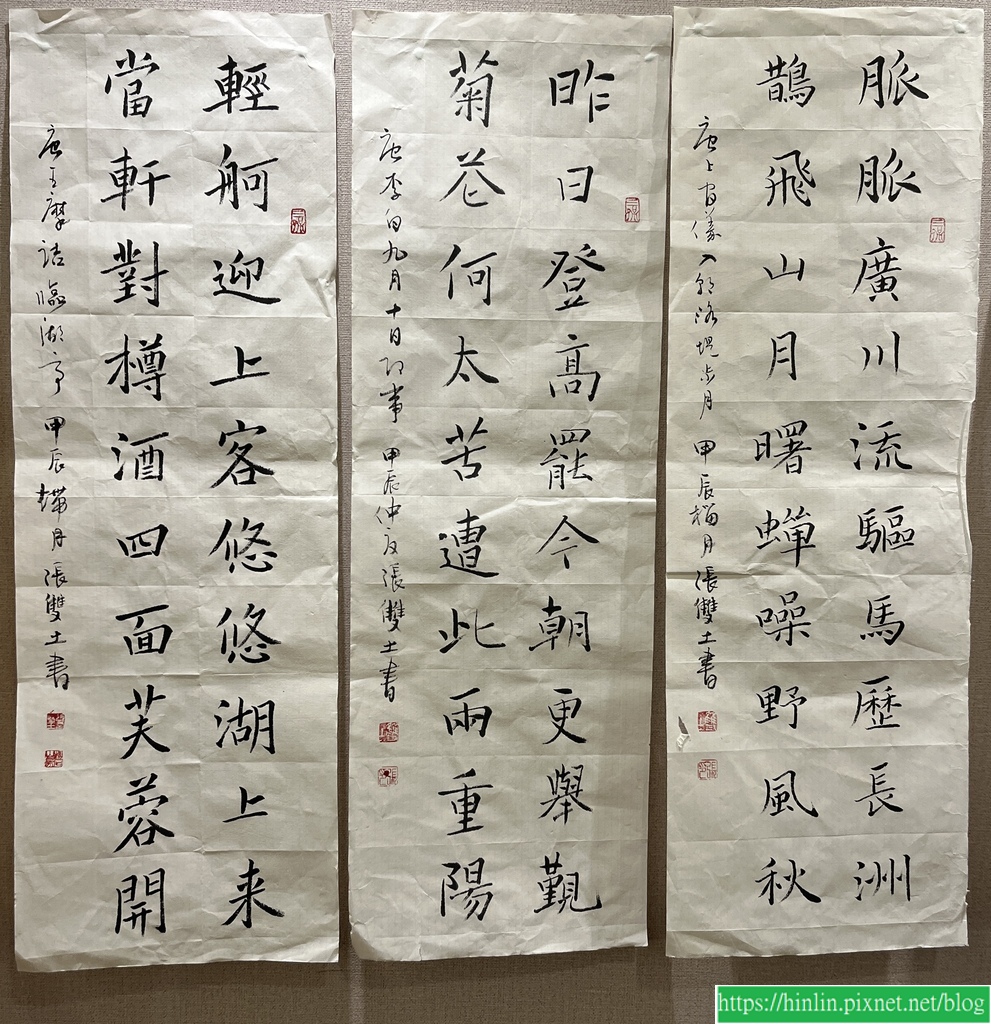 脈脈廣川流驅馬歷長洲
鵲飛山月曙蟬噪野風秋
唐上官儀入朝洛堤步月 甲辰榴月張雙土書
昨日登高罷今朝更舉覲
菊花何太苦遭此兩重陽
唐李白九月十日即事 甲辰仲夏張雙土書
輕舸迎上客悠悠湖上来
當軒對樽酒四面芙蓉開
唐王摩詰臨湖亭 甲辰月張雙土書
https://hinlin.pixnet.net/blog